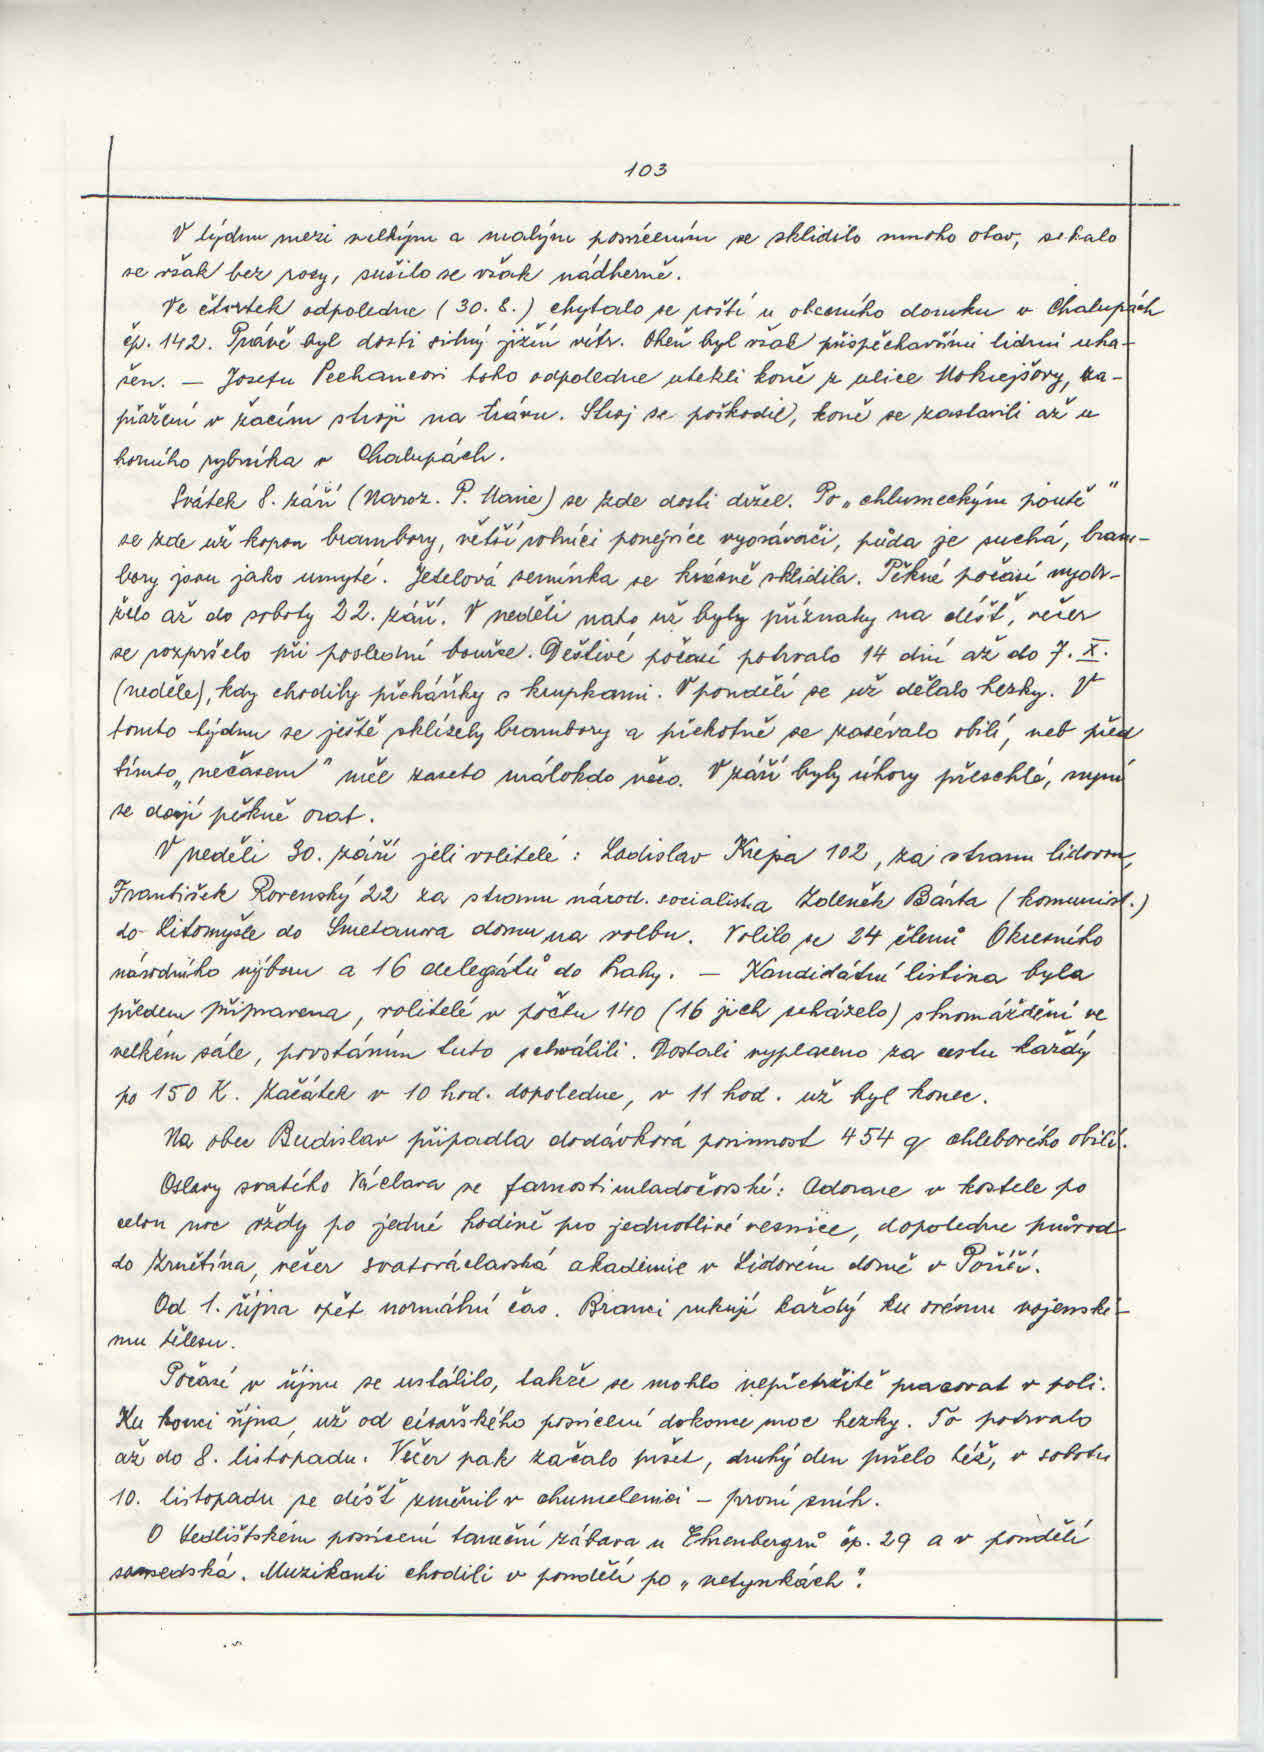 103
V týdnu mezi velkým a malým posvícením se sklidilo mnoho otav, sekalo
se však bez rosy, sušilo se však nádherně.
Ve čtvrtek odpoledne (30.8.) chytalo se roští u obecního domku v Chalupách
čp. 142. Právě byl dosti silný jižní vítr. Oheň byl však přispěchavšími lidmi uha-
šen. — Josefu Pechancovi toho odpoledne utekli koně z ulice Mokrejšovy, za-
přažení v žacím stroji na trávu. Stroj se poškodil, koně se zastavili až u
horního rybníka v Chalupách.
Svátek 8. září (Naroz. P. Marie) se zde dosti držel. Po „chlumeckým poutě"
se zde už kopou brambory, větší rolníci ponejvíce vyorávači, půda je suchá, bram-
bory jsou jako umyté. Jetelová semínka se krásně sklidila. Pěkné počasí vydr-
želo až do soboty 22. září. V neděli nato už byly příznaky na déšť, večer
se rozpršelo při poslední bouřce. Deštivé počasí potrvalo 14 dní až do 7. X.
(neděle), kdy chodily přeháňky s krupkami. V pondělí se už dělalo hezky. V
tomto týdnu se ještě sklízely brambory a překotně se zasévalo obilí, neb před
tímto „nečasem" měl zaseto málokdo něco. V září byly úhory přeschlé, nyní
se dají pěkně orat.
V neděli 30. září jeli volitelé: Ladislav Krejsa 102, za stranu lidovou,
František Rovenský 22 za stranu národ. socialista Zdeněk Bárta (komunist.)
do Litomyšle do Smetanova domu na volbu. Volilo se 24 členů Okresního
národního výboru a 16 delegátů do Prahy. — Kandidátní listina byla
předem připravena, volitelé v počtu 140 (16 jich scházelo) shromáždění ve
velkém sále, povstáním tuto schválili. Dostali vyplaceno za cestu každý
po 150 K. Začátek v 10 hod. dopoledne, v 11 hod. už byl konec.
Na obec Budislav připadla dodávková povinnost 454 q chlebového obilí.
Oslavy svatého Václava ve farnosti mladočovské: Adorace v kostele po
celou noc vždy po jedné hodině pro jednotlivé vesnice, dopoledne průvod
do Zrnětína, večer svatováclavská akademie v Lidovém domě v Poříčí.
Od 1. října opět normální čas. Branci rukují každý ku svému vojenské-
mu tělesu.
Počasí v říjnu se ustálilo, takže se mohlo nepřetržitě pracovat v poli.
Ku konci října, už od císařského posvícení dokonce moc hezky. To potrvalo
až do 8. listopadu. Večer pak začalo pršet, druhý den pršelo též, v sobotu
10. listopadu se déšť změnil v chumelenici – první sníh.
O Sedlišťském posvícení taneční zábava u Ehrenbergrů čp. 29 a v pondělí
sousedská. Muzikanti chodili v pondělí po „netynkách".